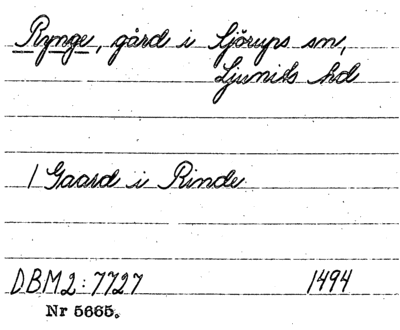 Rynge, gård i Sjörups sn,
Ljunits hd
1 Gaard i Rinde
DBM2:7727 1494
Nr 5665.